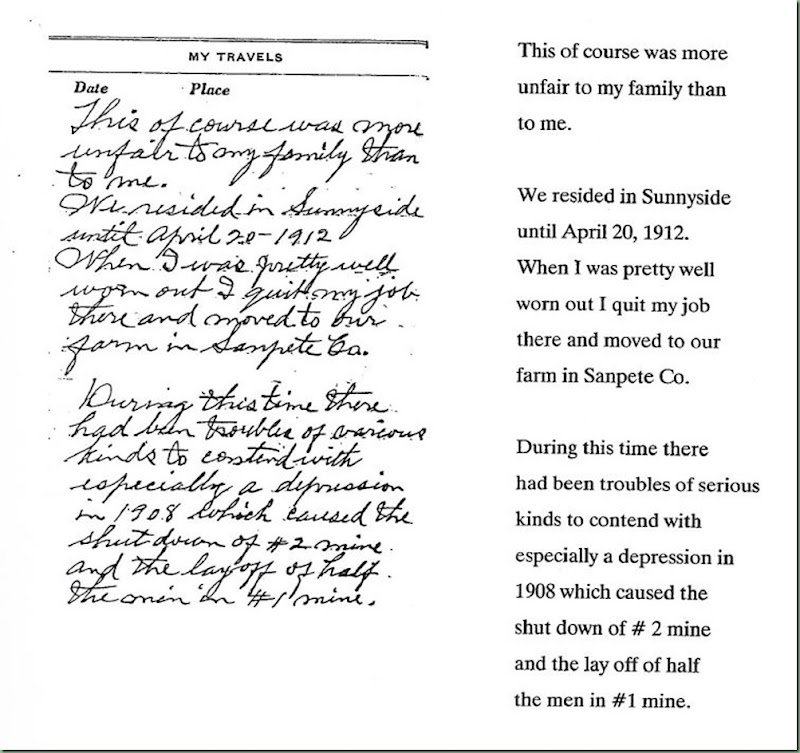 MY TRAVELS
Date Place
This of course was more
unfair to my family than
to me.
We resided in Sunnyside
until April 20-1912
When I was pretty well
worn out I quit my job
there and moved to our
farm in Sanpete Co.
During this time there
had been troubles of various
kinds to contend with
especially a depression
in 1908 which caused the
shut down of #2 mine
and the lay off of half
the men in #1 mine.
This of course was more
unfair to my family than
to me.
We resided in Sunnyside
until April 20, 1912.
When I was pretty well
worn out I quit my job
there and moved to our
farm in Sanpete Co.
During this time there
had been troubles of serious
kinds to contend with
especially a depression in
1908 which caused the
shut down of # 2 mine
and the lay off of half
the men in #1 mine.